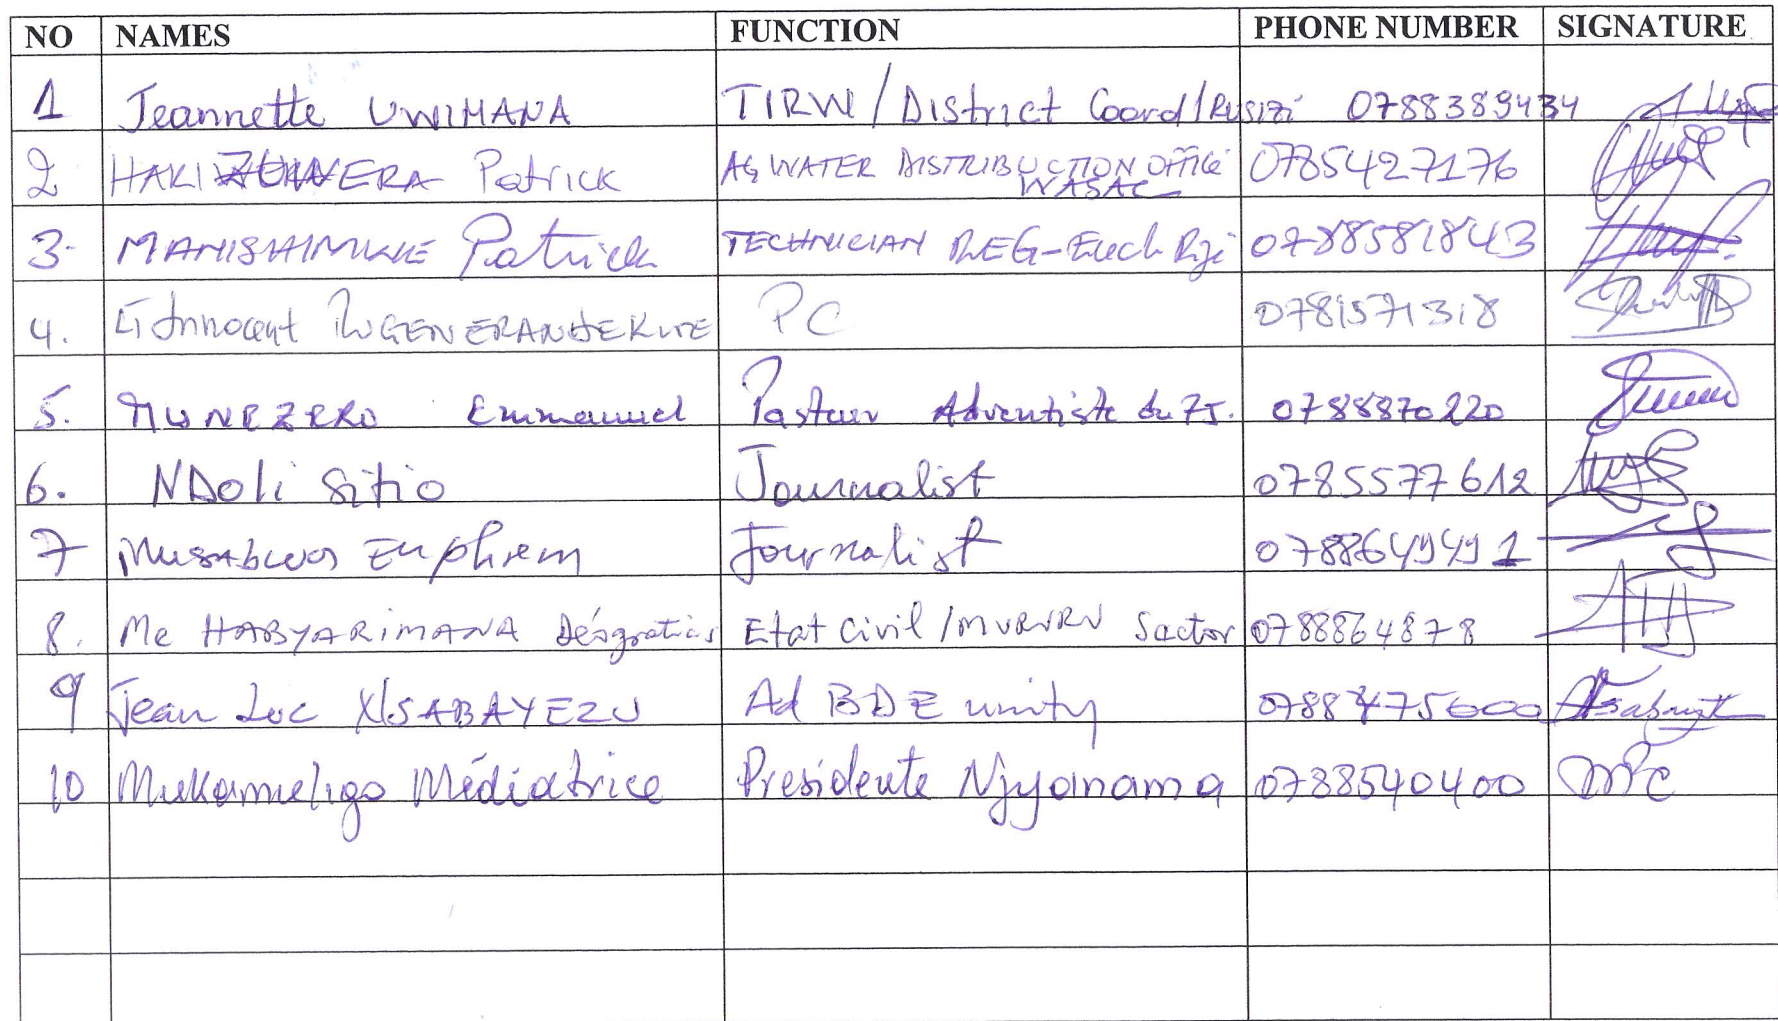 NO NAMES FUNCTION PHONE NUMBER SIGNATURE
1 Jeannette UWIMANA TIRW/District Coord/Rusizi 0788389434
2 Patrick AG WATER DISTRIBUCTION OFFICE 0785427176
WASAC
3. MANISHIMWE Patrick TECHNICIAN REG-Euch Rizi 0788581843
4. Innocent PC 0781571318
5. MUNEZERO Emmanuel Pasteur Adventiste du 7J. 0788870220
6. NDoli Sitio Journalist 0785577612
7 Musabwa Euphrem Journalist 0788649491
8. Me HABYARIMANA Déogratias Etat Civil/MURURU Sector 0788864878
9 Jean Luc NSABAYEZU Ad BDE unity 0788475600
10 Mukamuligo Médiatrice Presidente Njyanama 0788540400